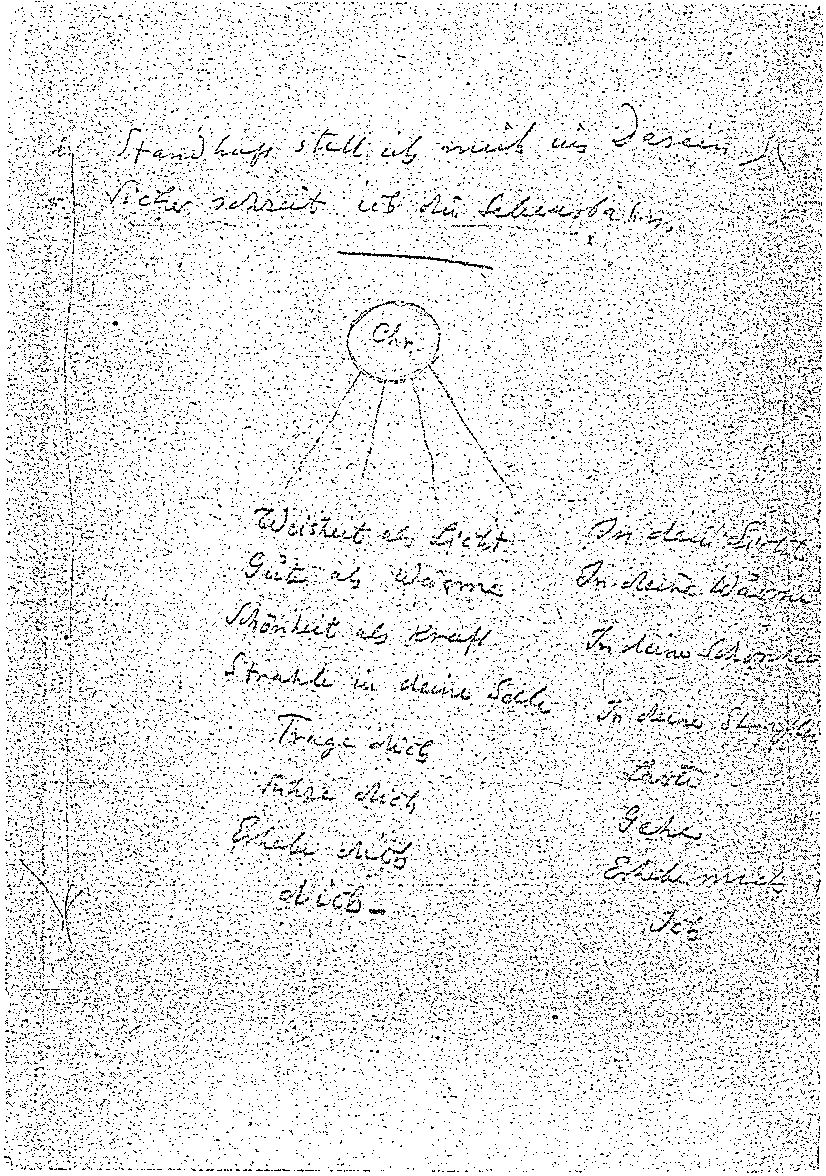 Standhaft stell ich mich ins Dasein
Sicher schreit ich die Lebensbahn,
Chr.
Weisheit als Licht
Güte als Wärme
Schönheit als Kraft
Strahle in deine Seele
Trage dich
Führe dich
Erhebe dich
dich –
In dein Licht
In deine Wärme
In deine
In deine
Gehe
Erhebe mich
Ich